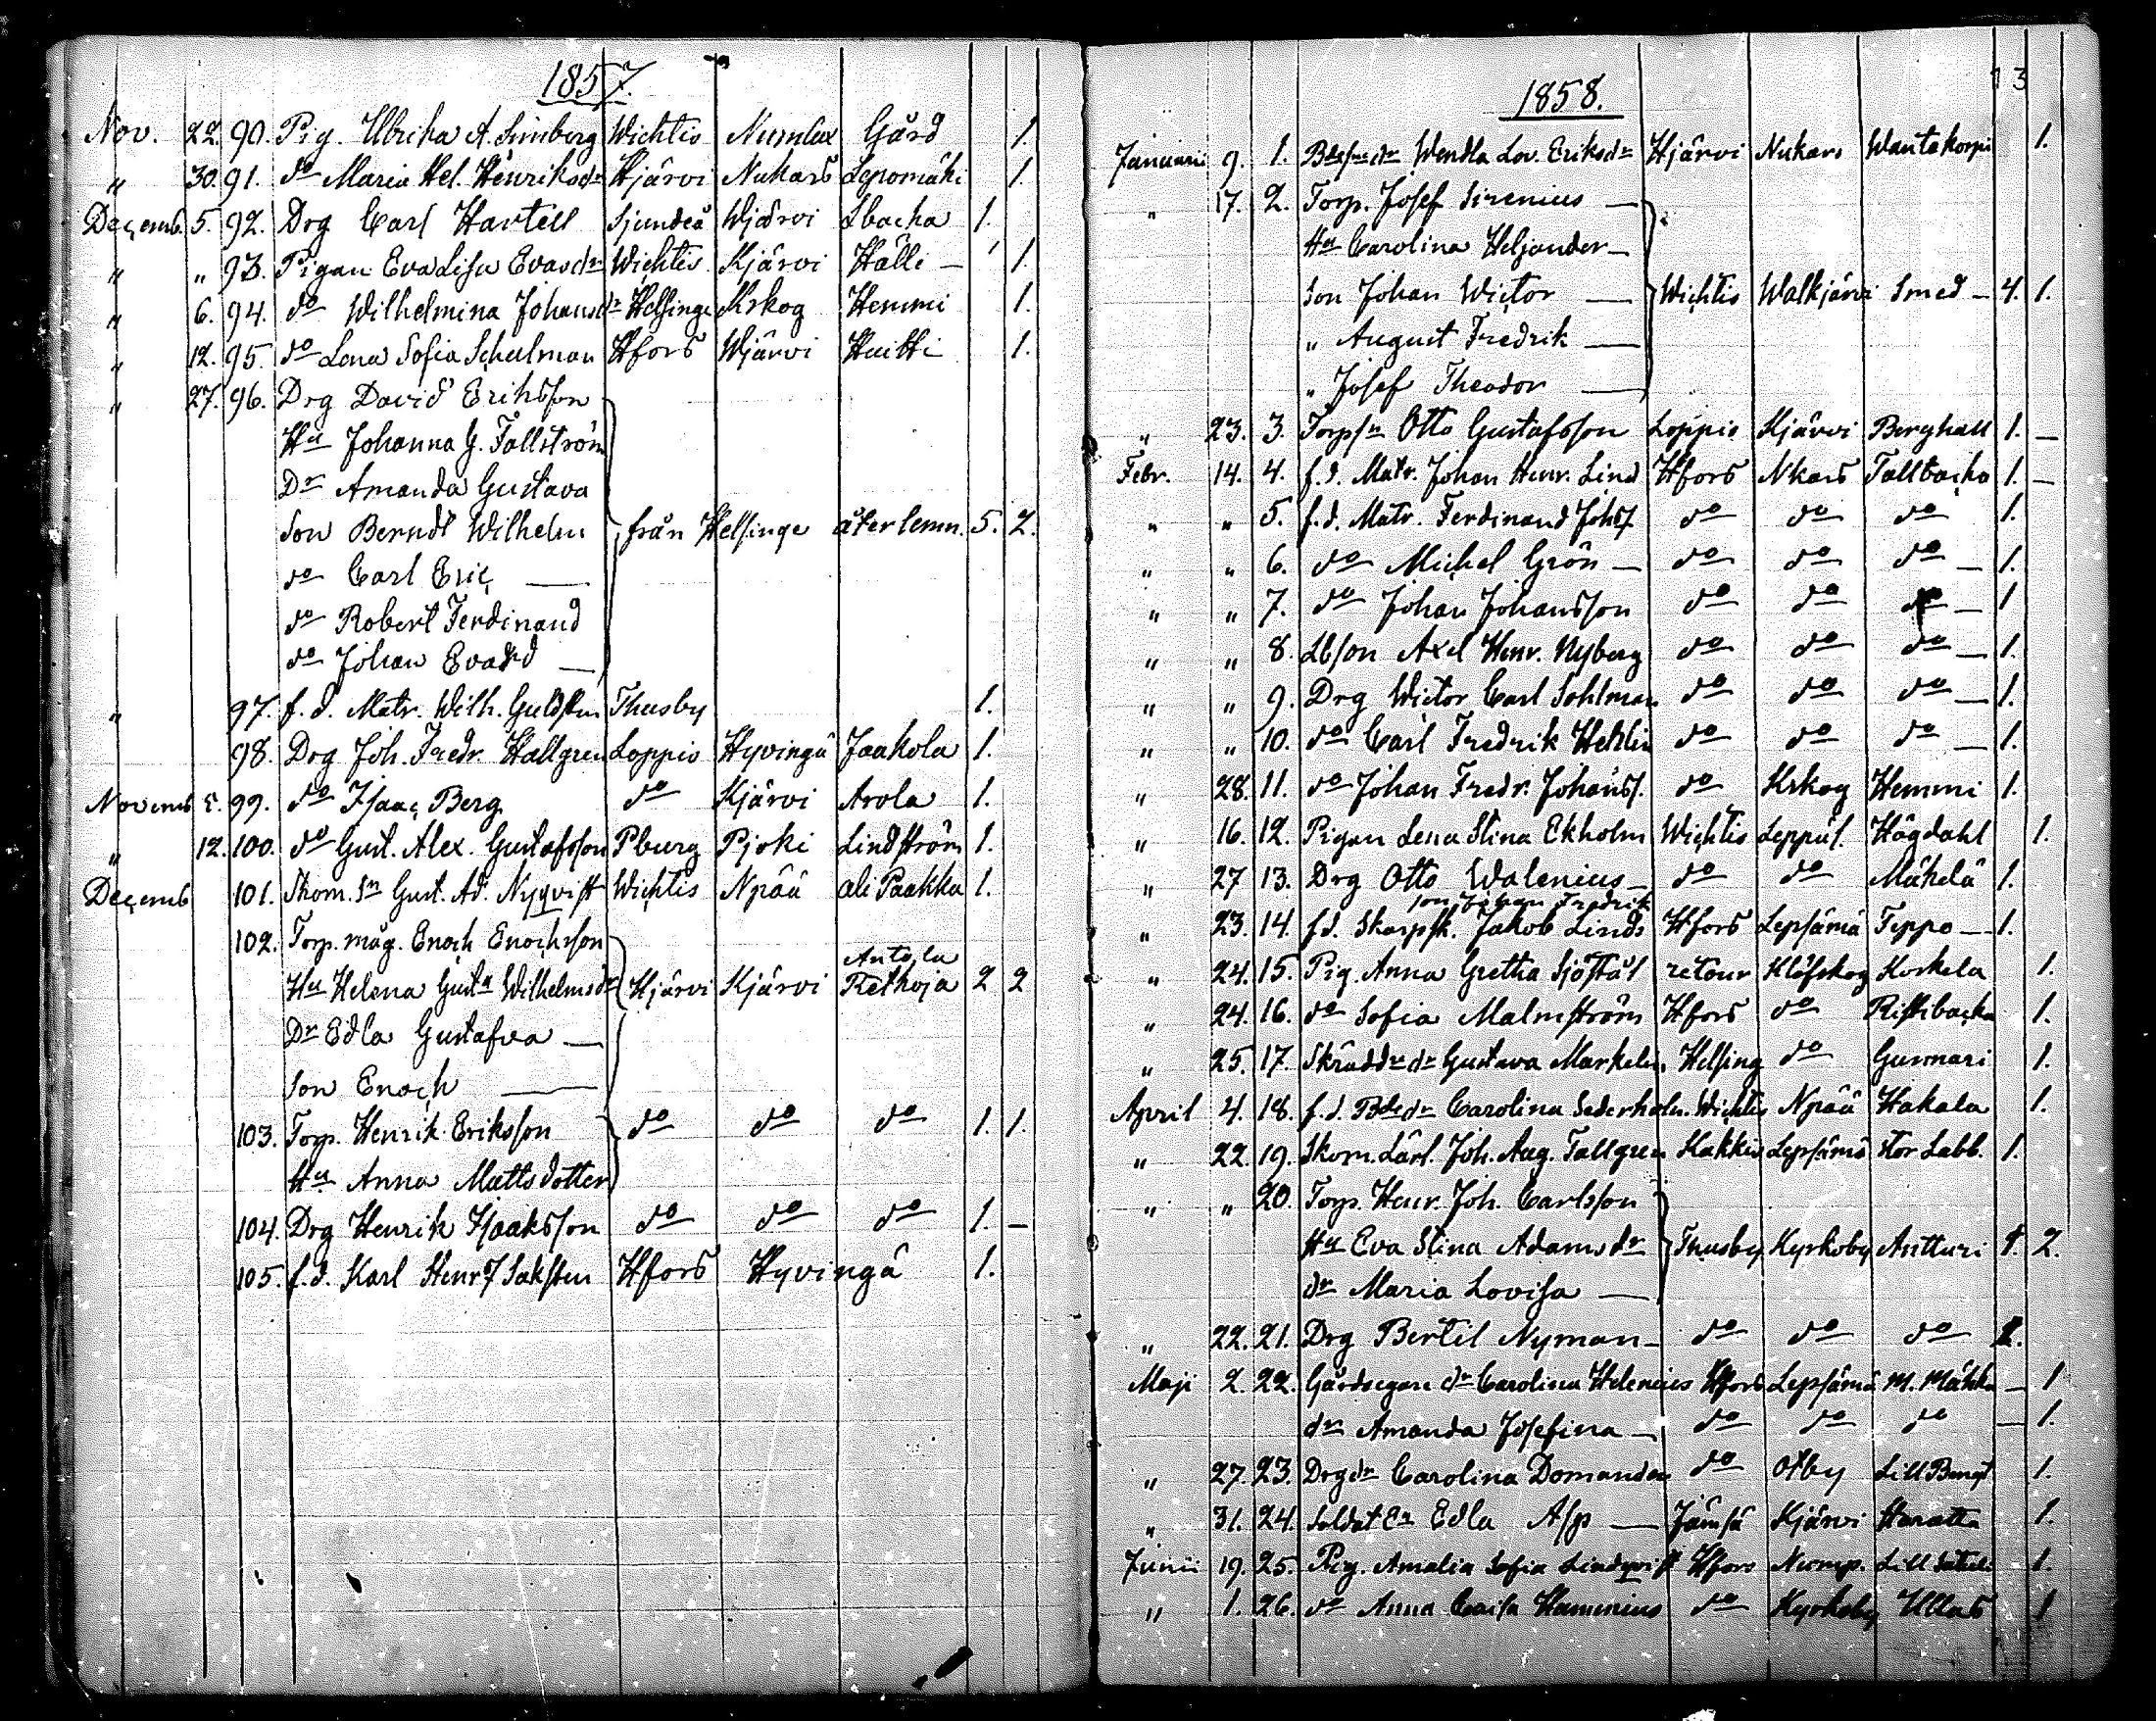 1857.
Nov. 22. 90. Pig. Ulrika A. Simberg Wichtis Numlax Gård 1.
" 30. 91. do Maria Hel. Henriksdr Hjärvi Nukars Lepomäki 1.
Decemb. 5. 92. Drg Carl Hartell Sjundeå Wjärvi Lbacka 1.
" " 93. Pigan Eva Lisa Evasdr Wichtis Kjärvi Hälli — 1.
" 6. 94. do Wilhelmina Johansdr Helsinge Krkog Hemmi 1.
" 12. 95. do Lena Sofia Schulman Hfors Wjärvi Huitti 1.
" 27. 96. Drg David Eriksson
Hu Johanna G. Tallström
Dr Amanda Gustava
Son Berndt Wilhelm från Helsinge återlemn. 5. 2.
do Carl Eric —
do Robert Ferdinand
do Johan Evard —
" 97. f.d. Matr. Wilh. Guldsten Thusby 1.
98. Drg Joh. Fredr. Hallgren Loppis Hyvingä Jaakola 1.
Novemb 5. 99. do Isaac Berg do Kjärvi Arola 1.
" 12. 100. do Gust. Alex. Gustafsson Pburg Pjoki Lindström 1.
Decemb 101. Skom. Sn Gust. Ad. Nyqvist Wichtis Npää ali Paakka 1.
102. Torp. måg. Enoch Enochsson
Antola
Hu Helena Gusta Wilhelmsdr Hjärvi Kjärvi Rethoja 2 2
Dr Edla Gustafva —
Son Enoch —
103. Torp. Henrik Eriksson do do do 1. 1.
Hu Anna Mattsdotter
104. Drg Henrik Isaksson do do do 1. —
105. f.d. Karl Henr. Isaksten Hfors Hyvingä 1.
13
1858.
Januarii 9. 1. Wendla Lov. Eriksdr Hjärvi Nukars Wantakorpi 1.
" 17. 2. Torp. Josef Sirenius —
Hu Carolina Heljander —
Son Johan Wictor — Wichtis Walkjärvi Smed — 4. 1.
" August Fredrik —
" Josef Theodor —
" 23. 3. Torpsn Otto Gustafsson Loppis Kjärvi Berghäll 1. —
Febr. 14. 4. f.d. Matr. Johan Henr. Lind Hfors Nkars Tallbacka 1. —
" " 5. f.d. Matr. Ferdinand Johss. do do do 1.
" " 6. do Michel Grön — do do do — 1.
" " 7. do Johan Johansson do do do — 1
" " 8. Lbson Axel Henr. Nyberg do do do — 1.
" " 9. Drg Wictor Carl Sohlman do do do — 1.
" " 10. do Carl Fredrik Hehlin do do do — 1.
" 28. 11. do Johan Fredr. Johanss. do Krkog Hemmi 1.
" 16. 12. Pigan Lena Stina Ekholm Wichtis Leppäl. Högdahl 1.
" 27 13. Drg Otto Walenius — do do Mäkelä 1.
son Johan Fredrik
" 23. 14. f.d. Skarpsk. Jakob Linds Hfors Lepsämä Teppo — 1.
" 24. 15. Pig. Anna Gretha Sjöstål retour Klöfskog Koskela 1.
" 24. 16. do Sofia Malmström Hfors do Ristibacka 1.
" 25. 17. Skräddredr Gustava Markelin. Helsing do Gunnari 1.
April 4. 18. f.d. Carolina Sederholm. Wichtis Npää Hakala 1.
" 22. 19. Skom. Lärl. Joh. Aug. Tallgren Kakkis Lepsämä Stor Labb. 1.
" " 20. Torp. Henr. Joh. Carlsson
Hu Eva Stina Adamsdr Thusby Kyrkoby Antturi 1. 2.
dr Maria Lovisa —
" 22. 21. Drg Bertil Nyman — do do do 1.
Maji 2. 22. Gårdsegare dr Carolina Helenius Hfors Lepsämä M. Mäkkä — 1
dr Amanda Josefina — do do do — 1.
" 27. 23. Drgdr Carolina Domander do Otby Lill Bengt 1.
" 31. 24. Soldat Ea Edla Asp — Jämsä Kjärvi Haratta 1.
Junii 19. 25. Pig. Amalia Sofia Lindqvist Hfors Nump. Lill Sutuli 1.
" 1. 26. do Anna Caisa Hammius do Kyrkoby Ullas 1